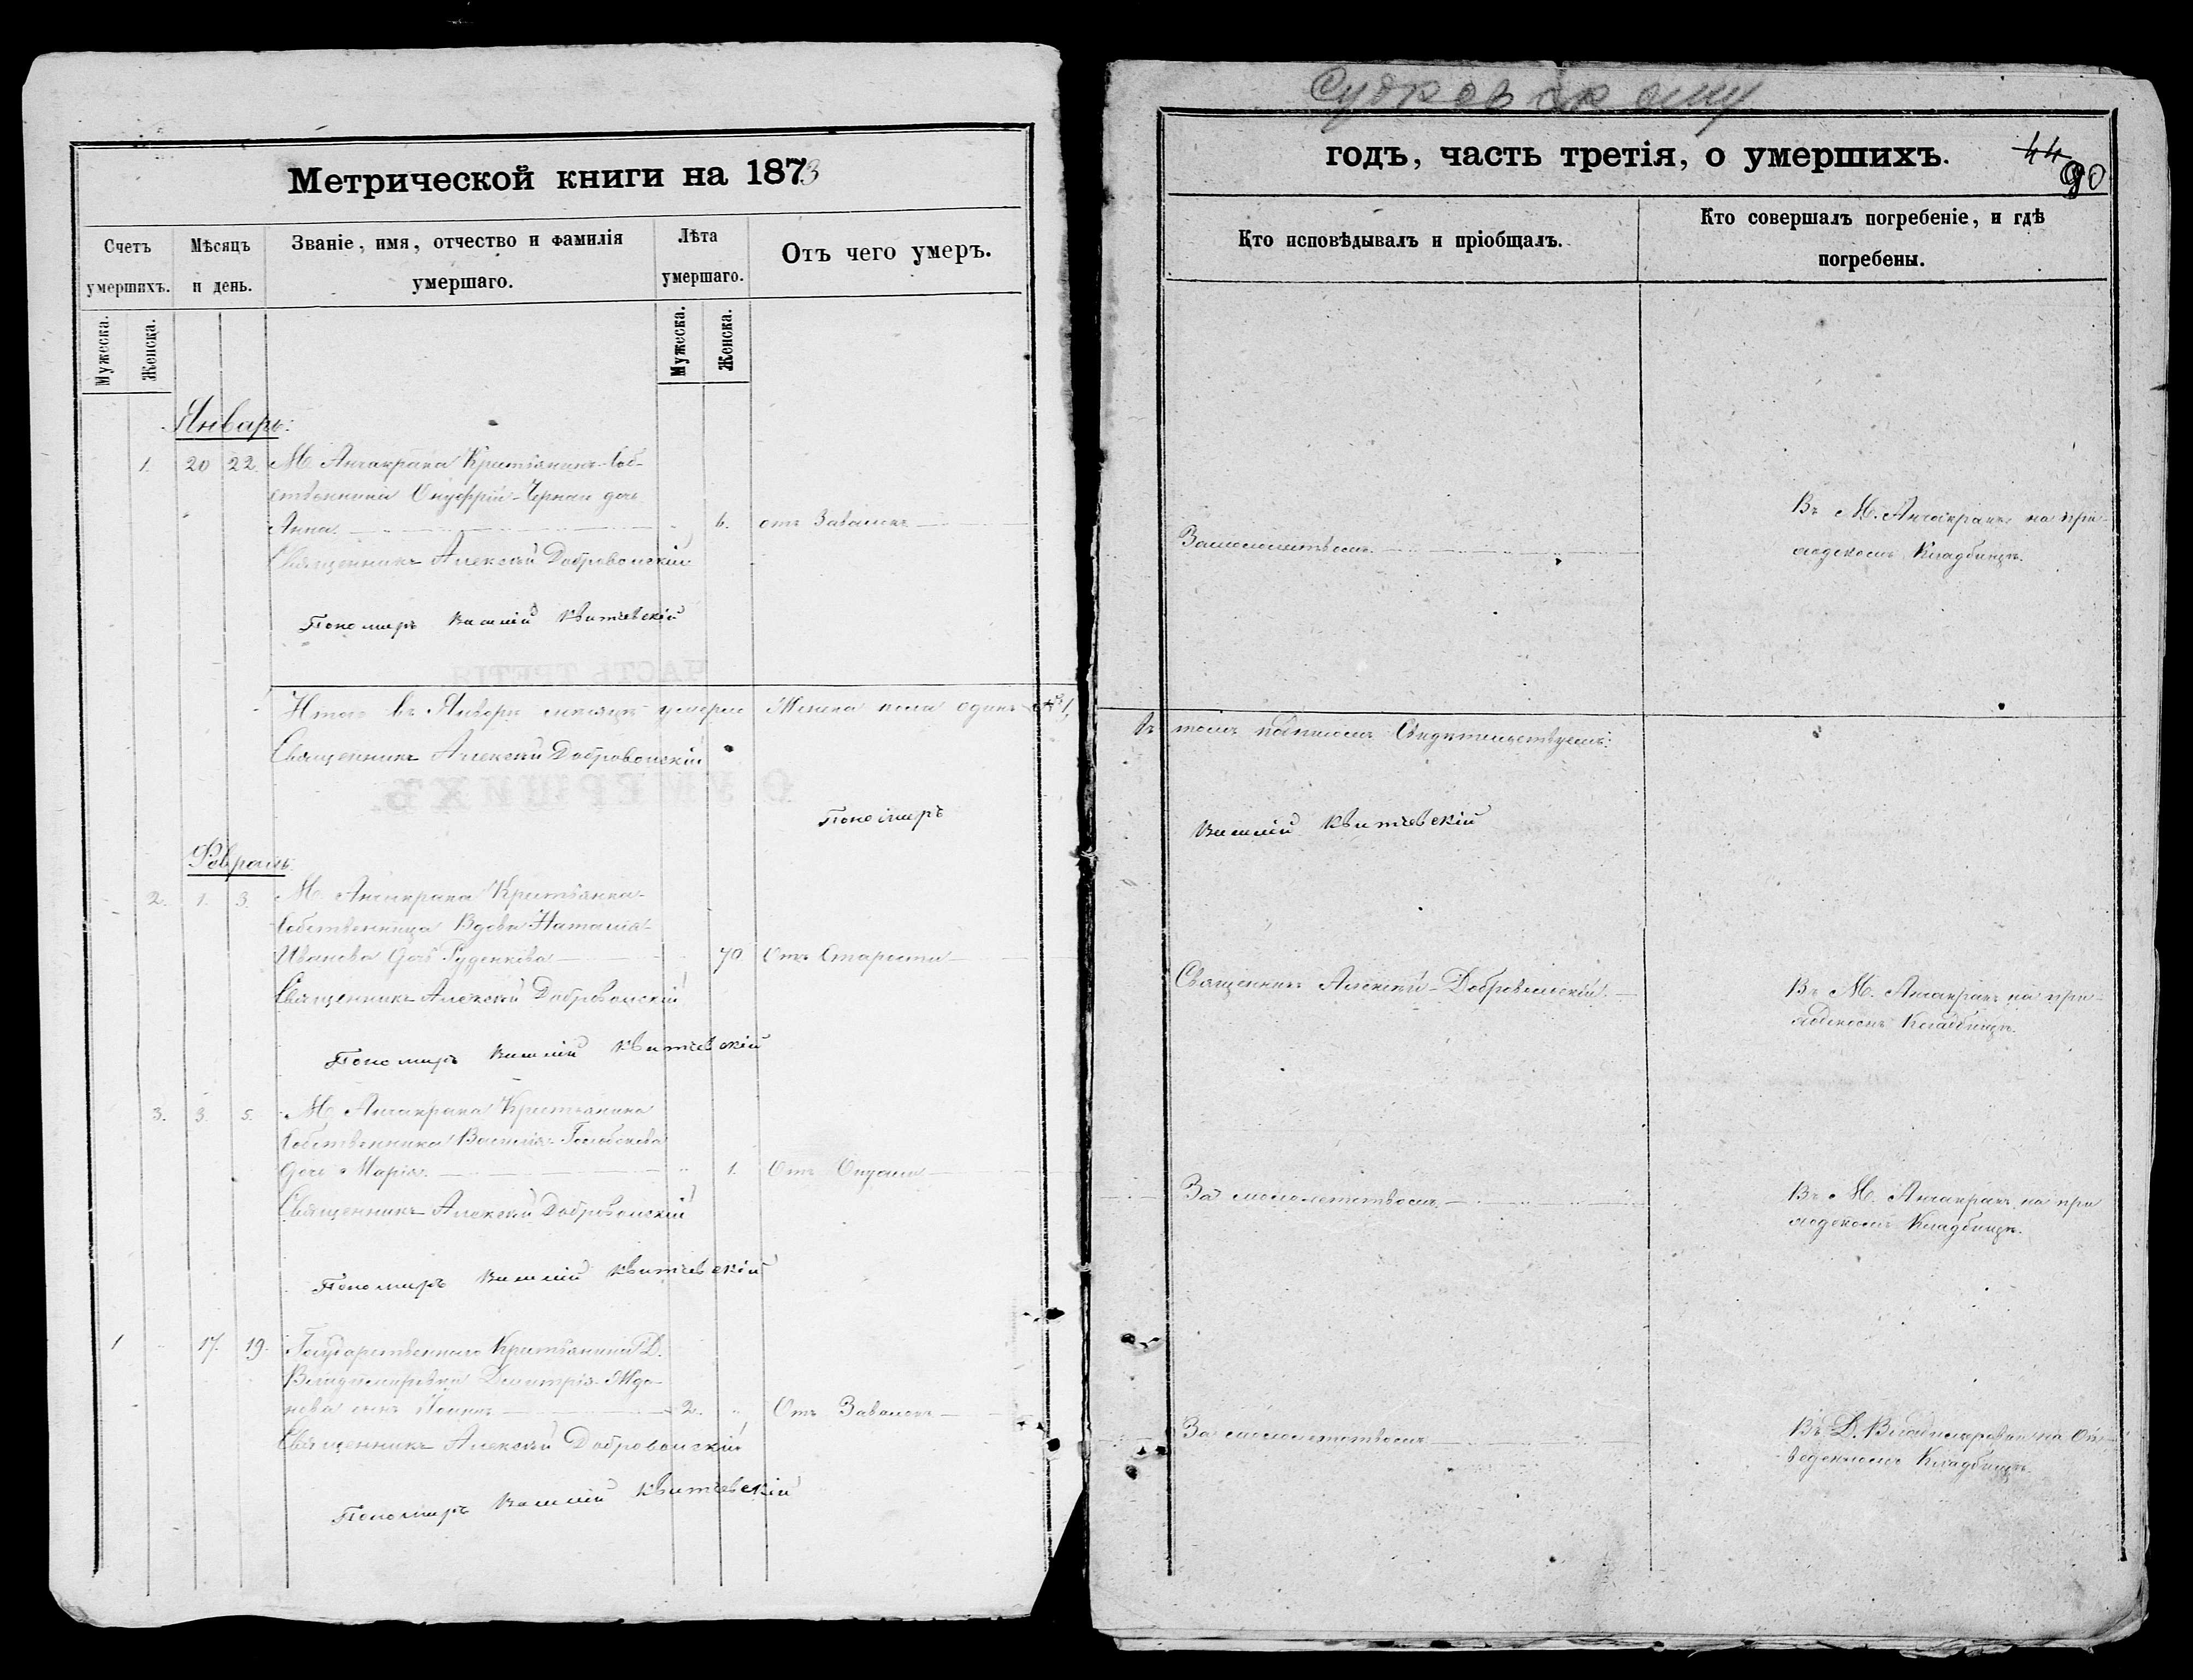 Метрической книги на 1873
Счетъ умершихъ.
Мѣсяцъ и день.
Званіе, имя, отчество и фамилія умершаго.
Лѣта умершаго.
Отъ чего умеръ.
Мужеска.
Женска.
Мужеска.
Женска.
Январь:
1. 20 22. М. Анчакрака Крестьянина Соб-
ственника Онуфрій Черная дочь
Анна 6. отъ
Священникъ Алексѣй Добровольскій
Пономарь Василій Квитчевскій
Итого въ Январѣ мѣсяцѣ умерло Женска пола одинъ № 1,
Священникъ Алексѣй Добровольскій
Пономарь
Февраль
2. 1. 3. М. Анчакрака Крестьянка
Собственница Вдова Наталія
Иванова дочь Руденкова 70 Отъ Старости
Священникъ Алексѣй Добровольскій
Пономарь Василій Квитчевскій
3. 3. 5. М. Анчакрака Крестьянина
Собственника Василія
дочь Марія 1. Отъ
Священникъ Алексѣй Добровольскій
Пономарь Василій Квитчевскій
1 17. 19. Государственнаго Крестьянина Д.
Владимировки Димитрія
сынъ 2. Отъ
Священникъ Алексѣй Добровольскій
Пономарь Василій Квитчевскій
годъ, часть третія, о умершихъ.
44
90
Кто исповѣдывалъ и пріобщалъ.
Кто совершалъ погребеніе, и гдѣ погребены.
Въ М. Анчакракѣ на при-
Замалолѣтствомъ ходскомъ Кладбищѣ.
въ томъ подписомъ Свидѣтельствуемъ:
Василій Квитчевскій
Священникъ Алексѣй Добровольскій
Въ М. Анчакракѣ на при-
ходскомъ Кладбищѣ.
За малолѣтствомъ Въ М. Анчакракѣ на при
ходскомъ Кладбищѣ.
За малолѣтствомъ Въ Д. Владимировки на
Кладбищѣ.